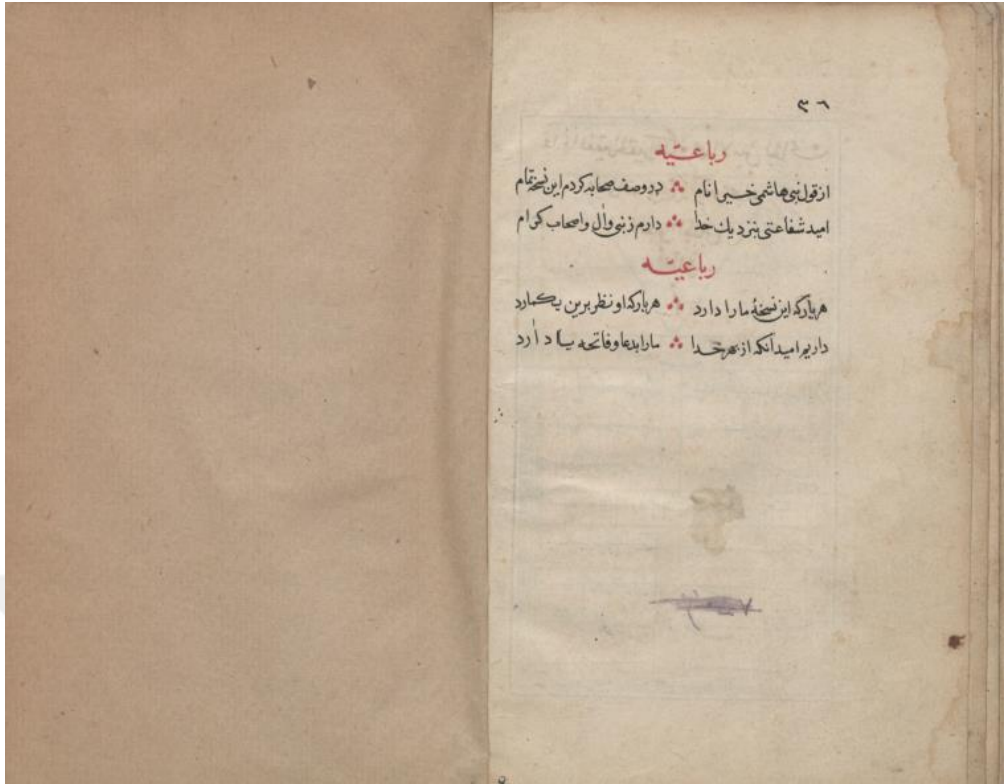 ٣٦
رباعیّه
از قول نبی هاشمی خیر انام ؞ در وصف صحابه کردم این نسخه تمام
امید شفاعتی بنزدیك خدا ؞ دارم ز نبی وآل واصحاب کرام
رباعیّه
هر بار که این نسخهٔ ما را دارد ؞ هر بار که او نظر برین بکمارد
داریم امید آنکه از بهر خدا ؞ ما را بدعا وفاتحه یاد آرد